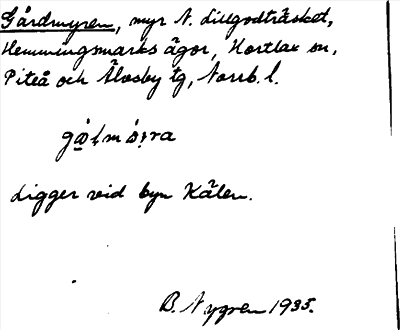 Gårdmyren, myr N. Lillgodträsket,
Hemmingsmarks ägor, Hortlax sn,
Piteå och Älvsby tg, Norrb. l.
Ligger vid byn Kälen.
B. Nygren 1935.